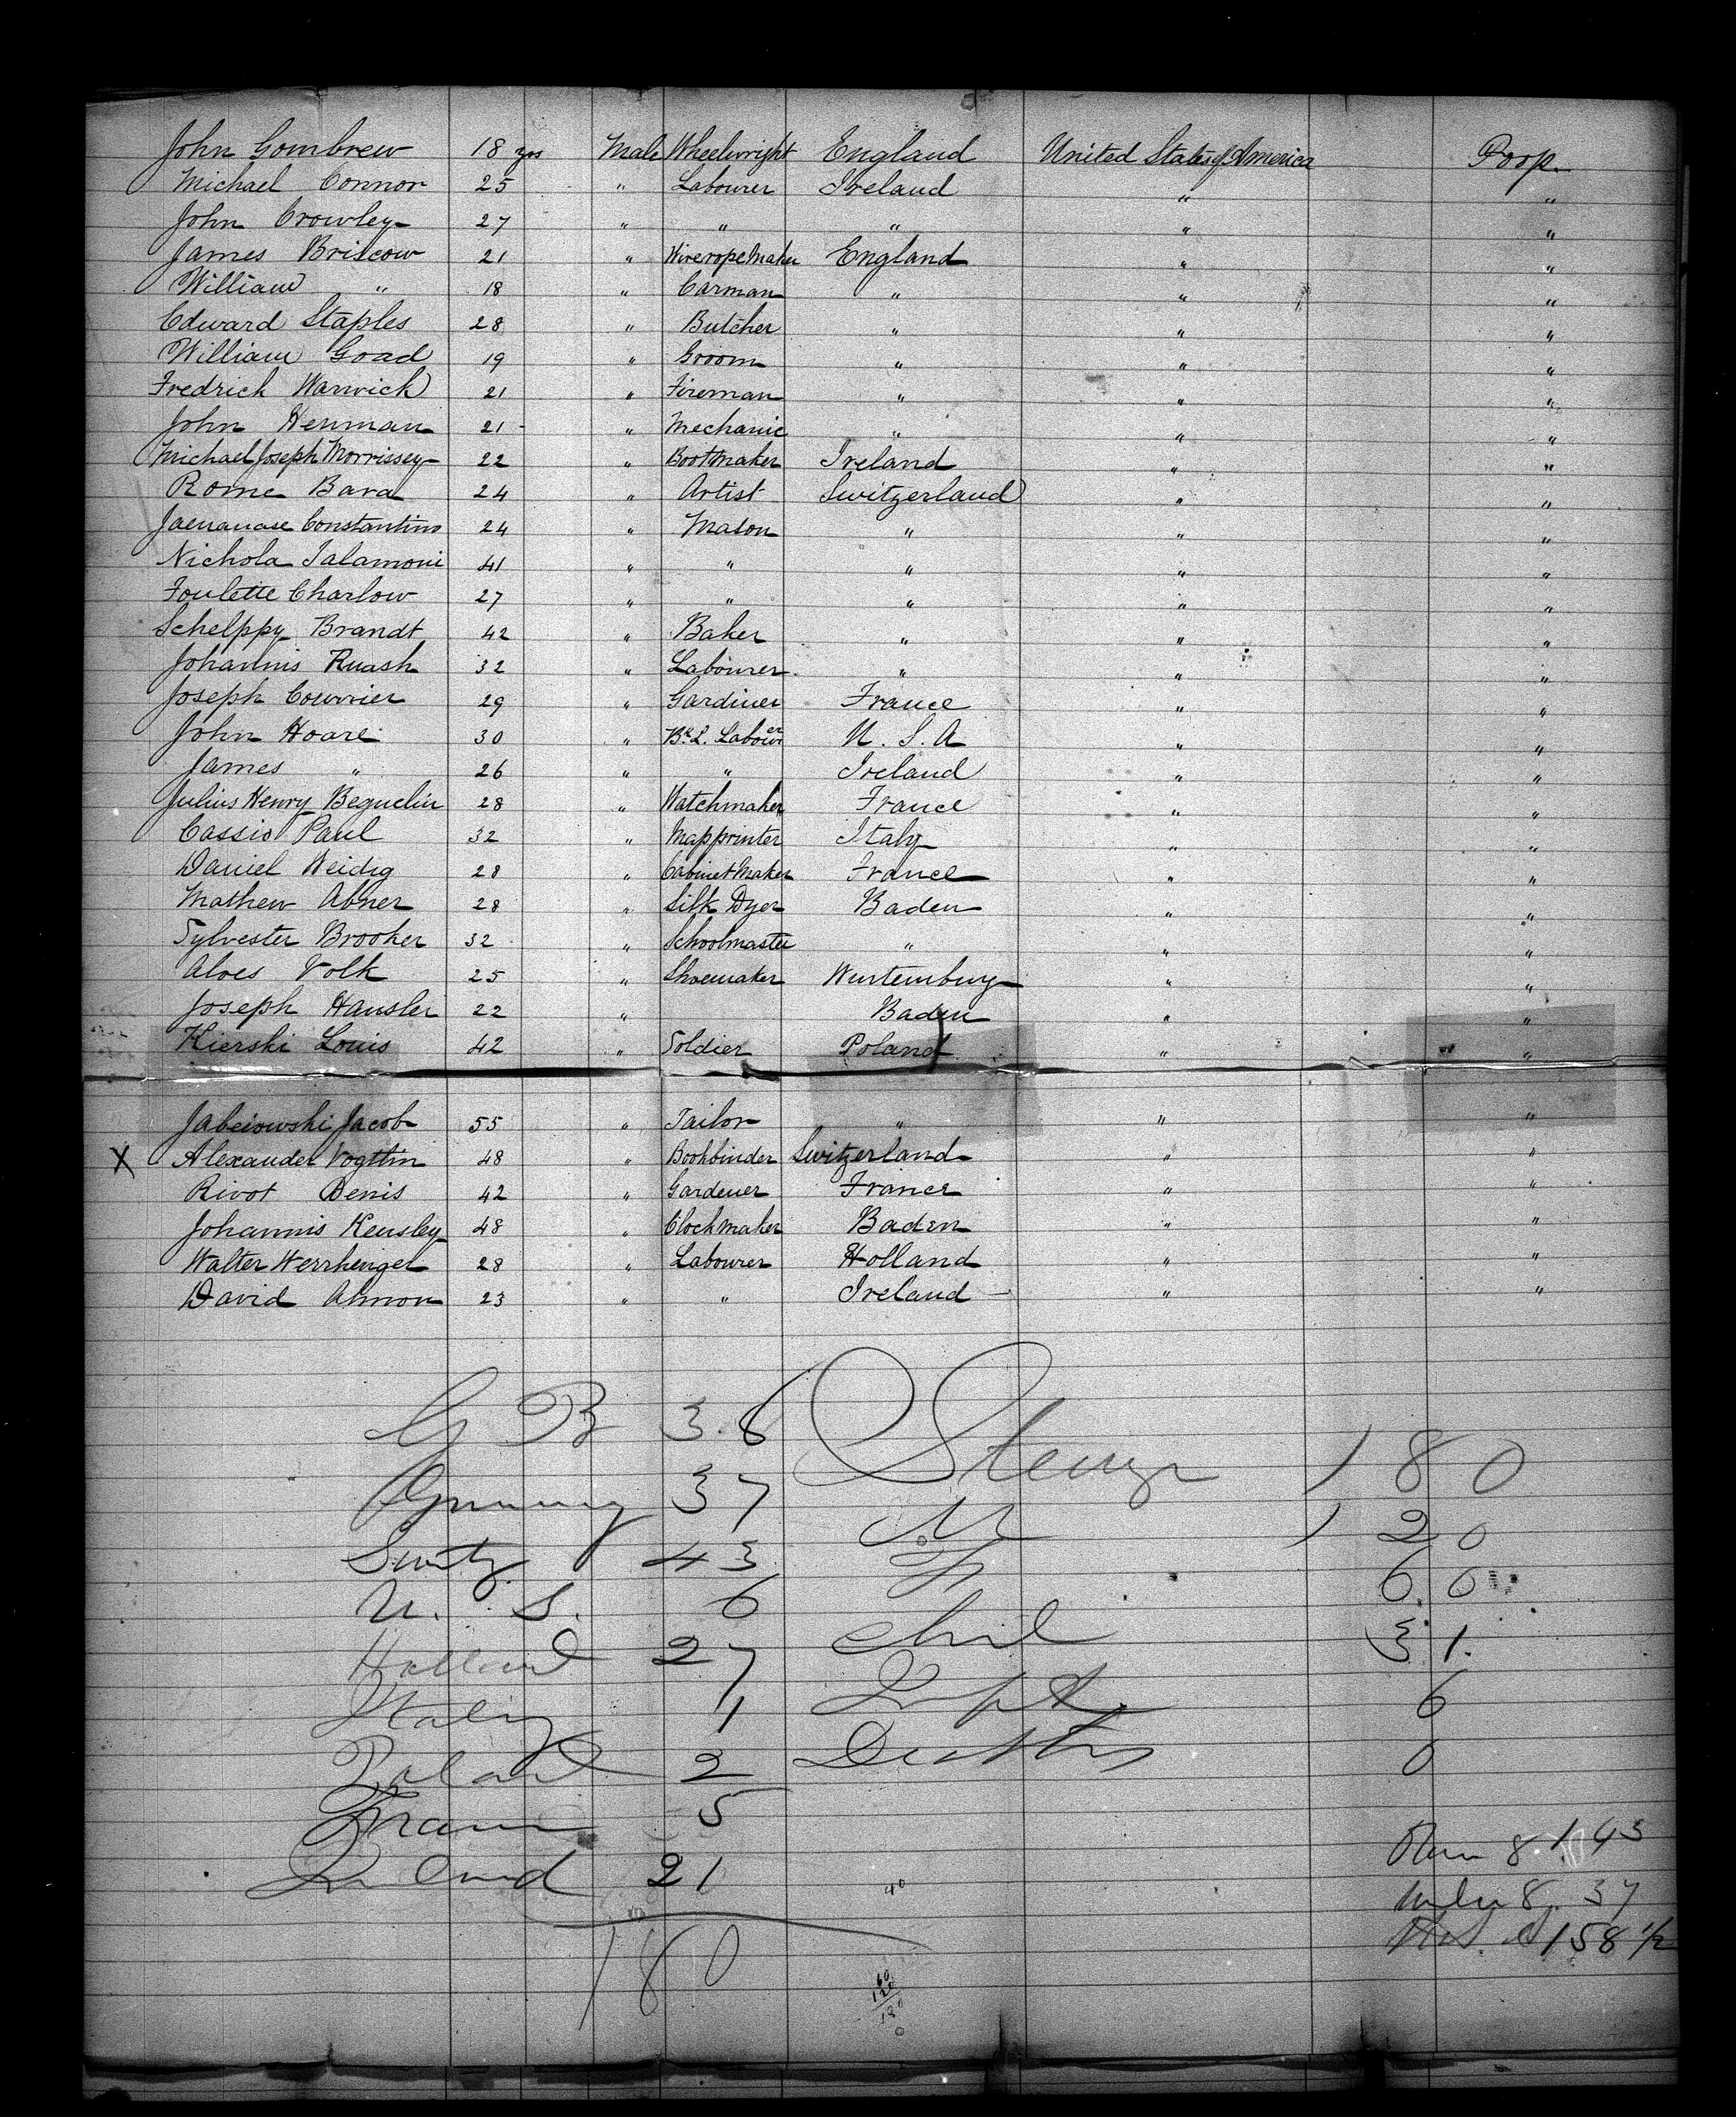 John Gombrew 18 yrs Male Wheelwright England United States of America Poop.
Michael Connor 25 " Labourer Ireland " "
John Crowley 27 " " " " "
James Briscow 21 " Wireropemaker England " "
William " 18 " Carman " " "
Edward Staples 28 " Butcher " " "
William Goad 19 " Groom " " "
Fredrich Warwick 21 " Fireman " " "
John Henman 21 " Mechanic " " "
Michael Joseph Morrissey 22 " Bootmaker Ireland " "
Rome Bava 24 " Artist Switzerland " "
Constantino 24 " Mason " " "
Nichola Salamoni 41 " " " " "
Foulette Charlow 27 " " " " "
Schelppy Brandt 42 " Baker " " "
Johannis Ruash 32 " Labourer " " "
Joseph Couvrier 29 " Gardiner France " "
John Hoare 30 " Labourer U. S. A " "
James " 26 " " Ireland " "
Julius Henry Beguelin 28 " Watchmaker France " "
Cassio Paul 32 " Mapprinter Italy " "
Daniel Weidig 28 " Cabinet Maker France " "
Mathew Abner 28 " Silk Dyer Baden " "
Sylvester Brooker 32 " Schoolmaster " " "
Aloes Volk 25 " Shoemaker Wurtemburg " "
Joseph Hausler 22 " Baden " "
Kierski Louis 42 " Soldier Poland " "
Jabeiowski Jacob 55 " Tailor " " "
X Alexander Vogttin 48 " Bookbinder Switzerland " "
Rivot Denis 42 " Gardener France " "
Johannis Kensley 48 " Clockmaker Baden " "
Walter Werrhenget 28 " Labourer Holland " "
David Ahmon 23 " " Ireland " "
G B 38 Steerge 180
Germany 37 M 120
Switz 43 F 60
U. S. 6 Chil 31.
Holland 27 Infts 6
Italy 1 Deaths 0
Poland 2
France 5
Ireland 21
180
40
60
120
180
0
8. 143
8. 37
158 1/2